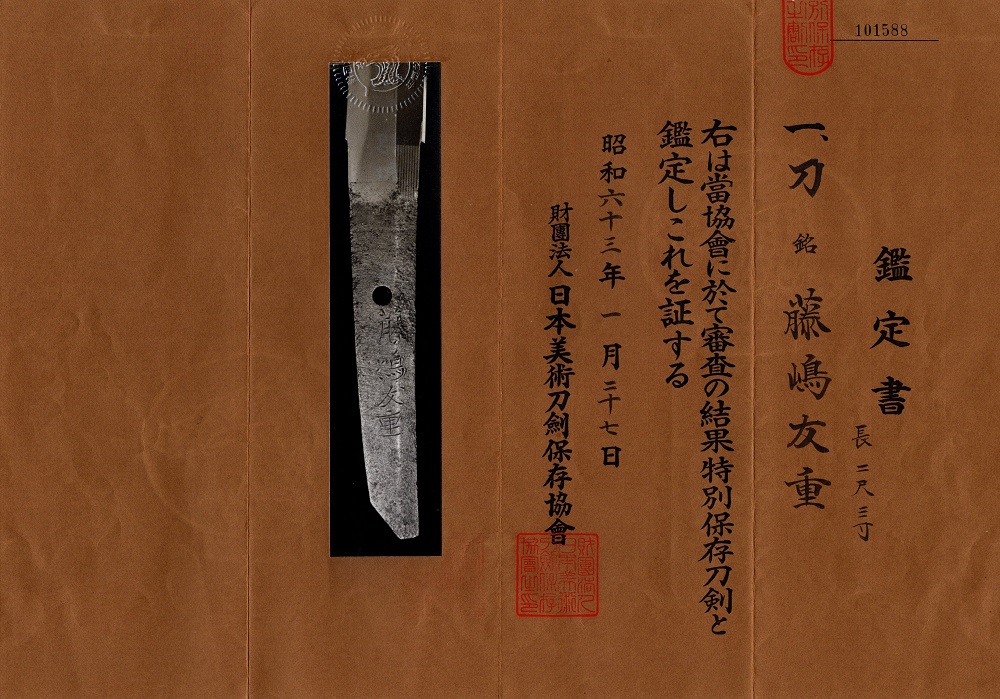 101588
鑑定書
長二尺三寸
一、刀 銘 藤嶋友重
右は當協會に於て審査の結果特別保存刀剣と
鑑定しこれを証する
昭和六十三年一月二十七日
財團法人日本美術刀劍保存協會
藤嶋友重